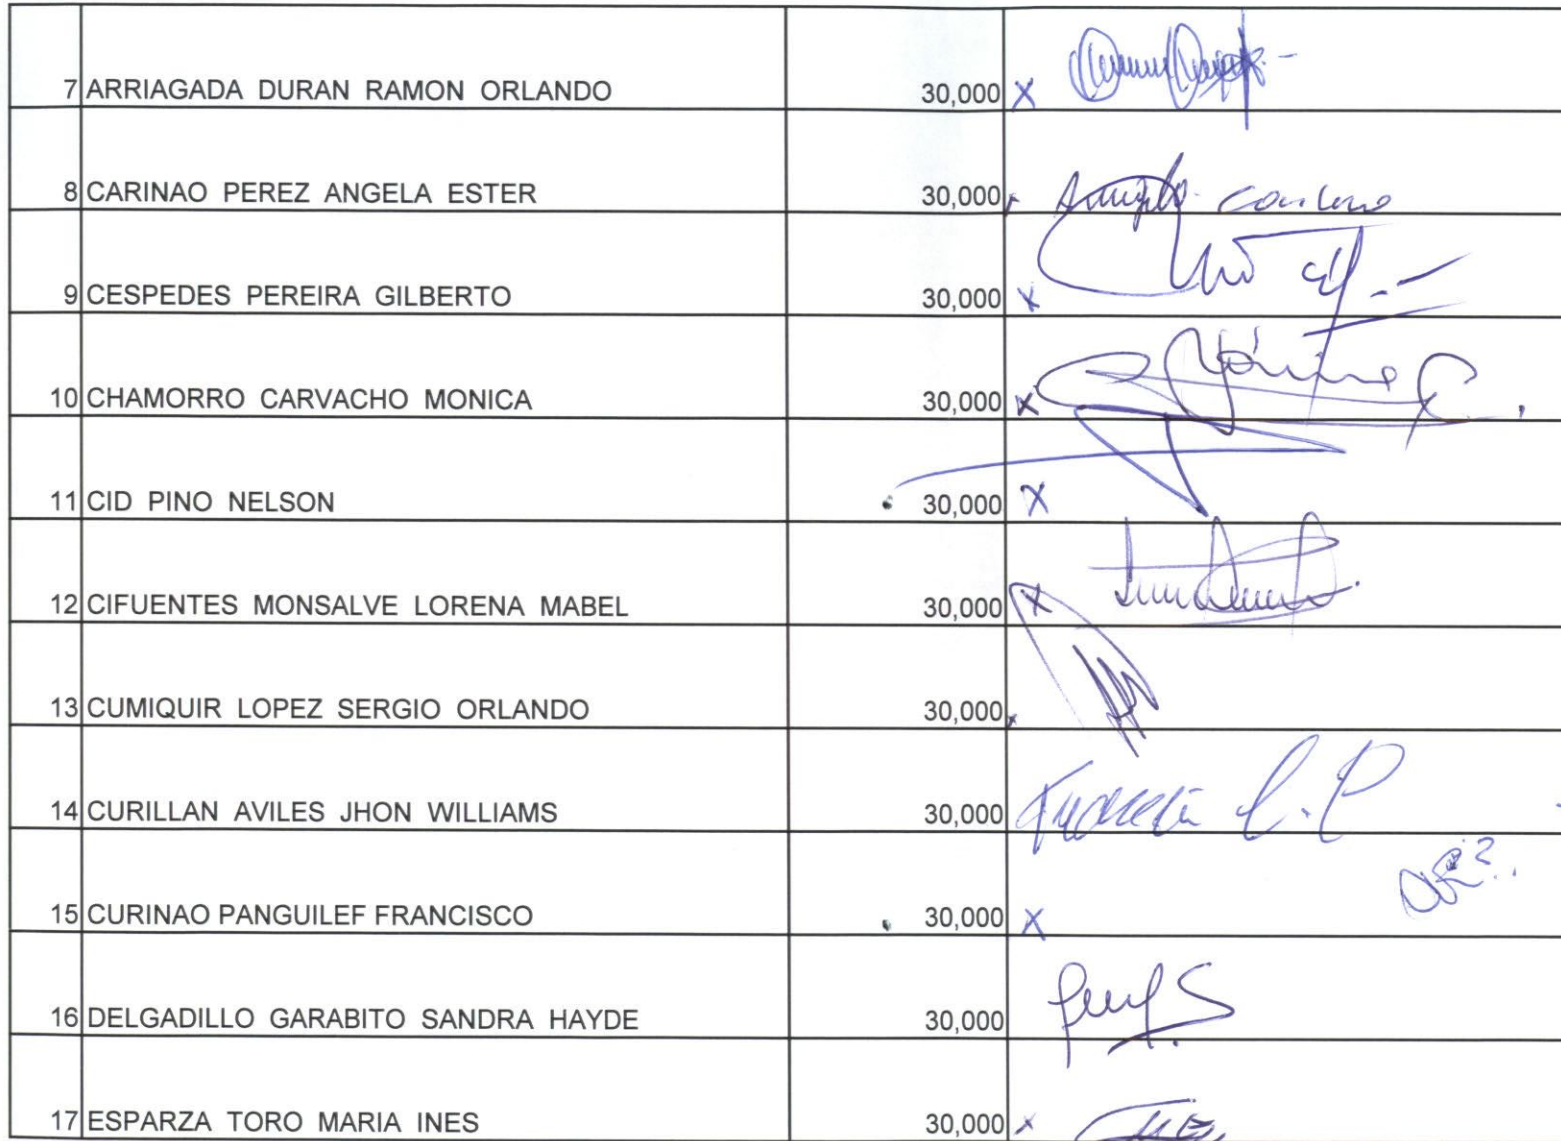 7 ARRIAGADA DURAN RAMON ORLANDO 30,000 X
8 CARINAO PEREZ ANGELA ESTER 30,000
9 CESPEDES PEREIRA GILBERTO 30,000 X
10 CHAMORRO CARVACHO MONICA 30,000 X Mónica C.
11 CID PINO NELSON 30,000 X
12 CIFUENTES MONSALVE LORENA MABEL 30,000 X
13 CUMIQUIR LOPEZ SERGIO ORLANDO 30,000 x
14 CURILLAN AVILES JHON WILLIAMS 30,000
15 CURINAO PANGUILEF FRANCISCO 30,000 X
16 DELGADILLO GARABITO SANDRA HAYDE 30,000
17 ESPARZA TORO MARIA INES 30,000 x